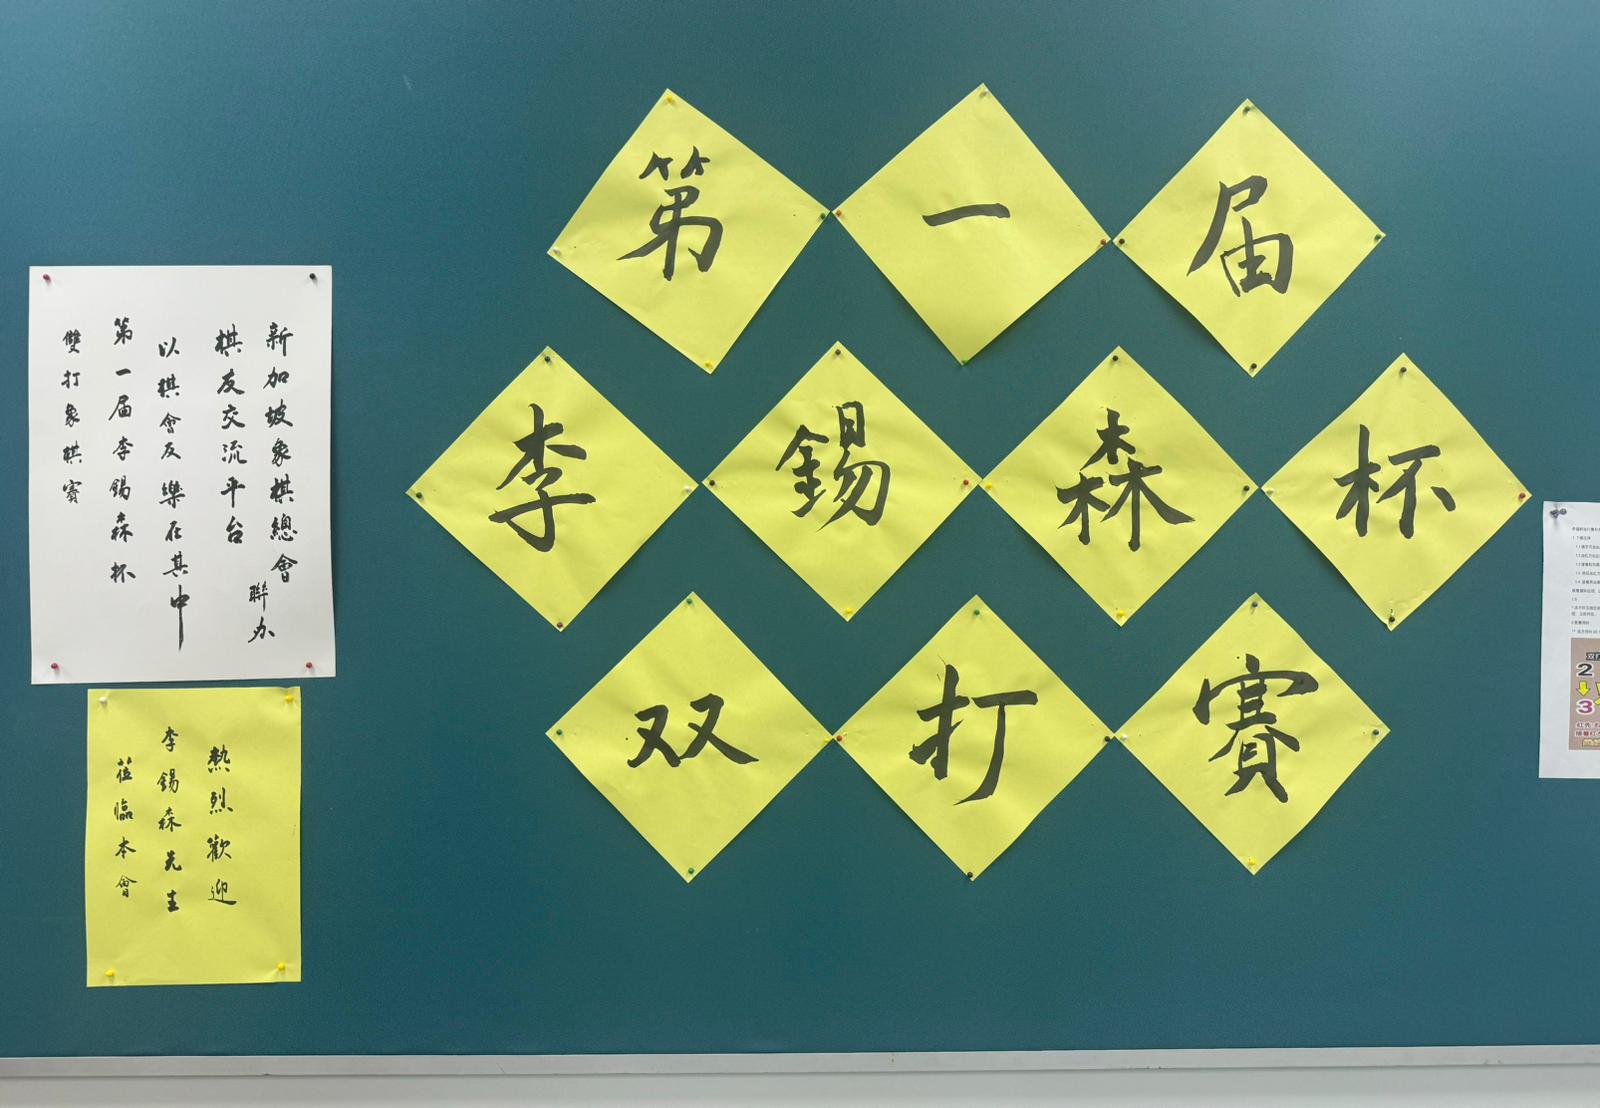 第一届
李錫森杯
双打賽
新加坡象棋總會
棋友交流平台
聯办
以棋會友樂在其中
第一届李錫森杯
雙打象棋賽
熱烈歡迎
李錫森先生
莅臨本會
2
3